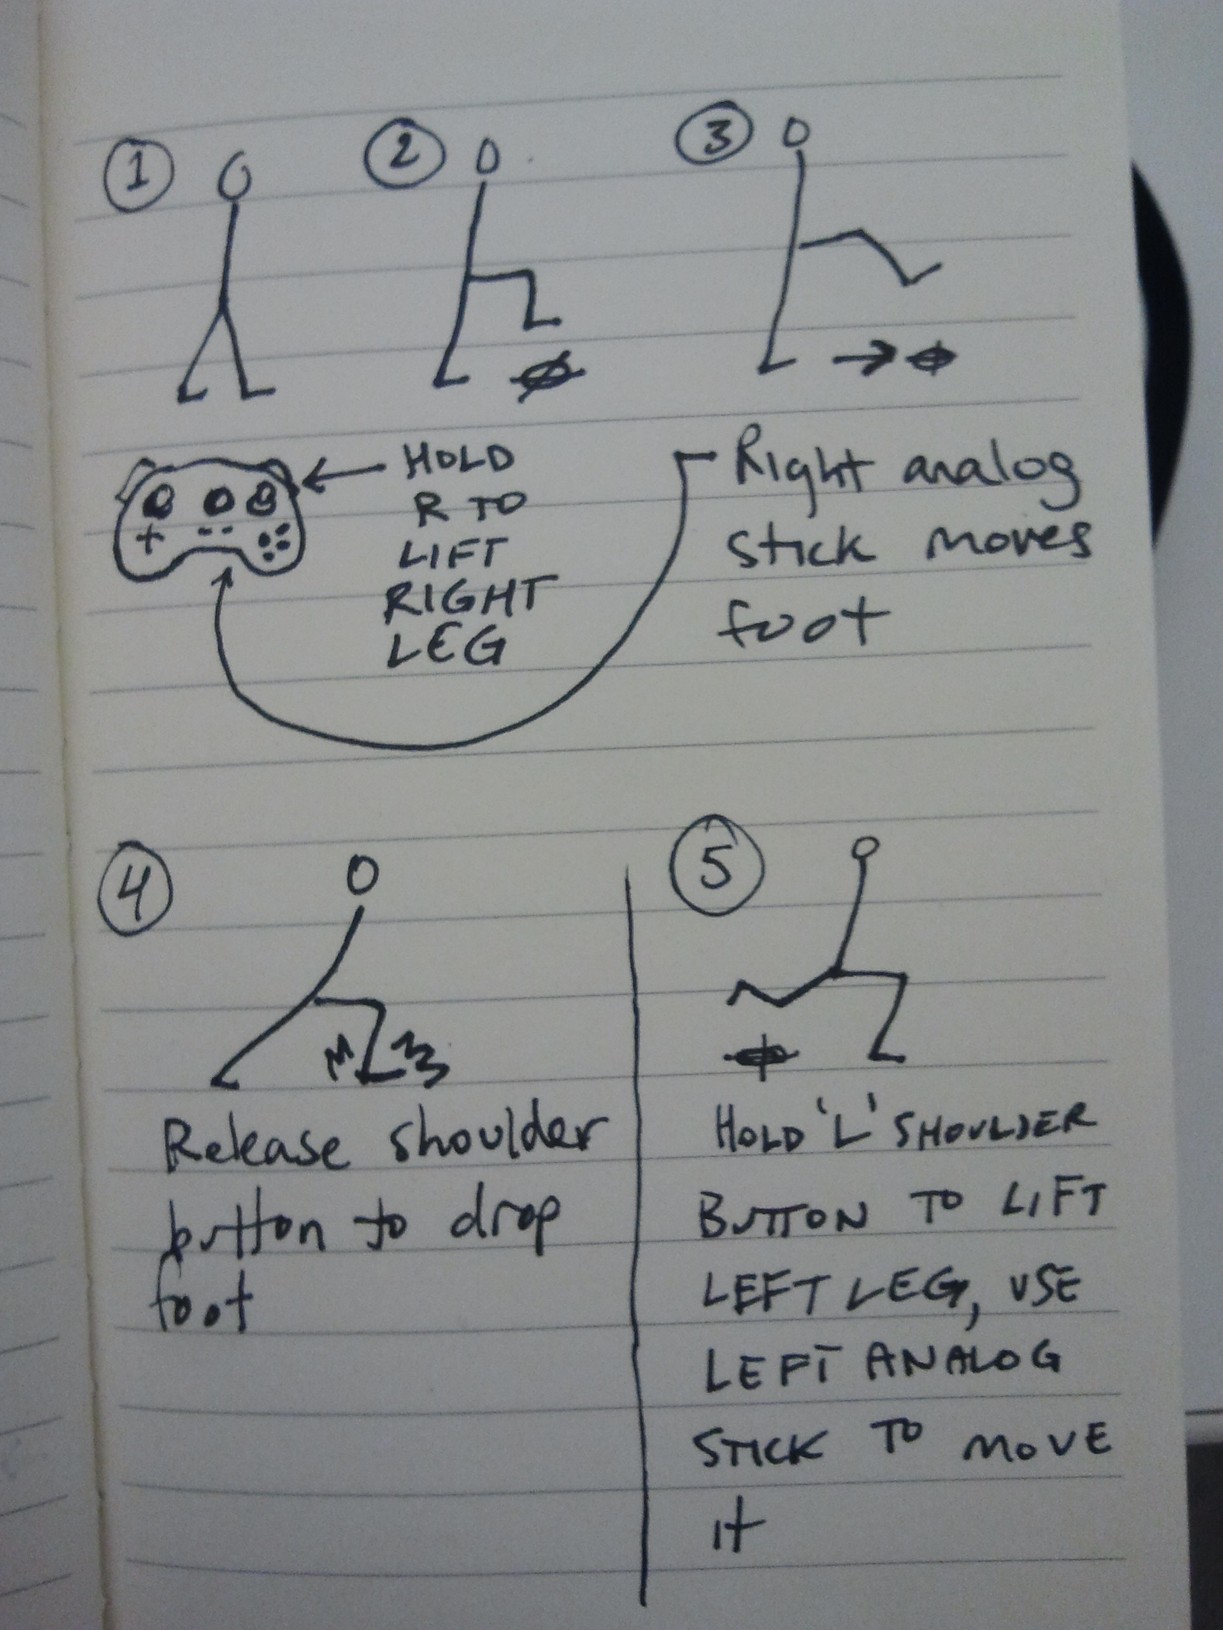 1
2
3
HOLD
R TO
LIFT
RIGHT
LEG
Right analog
stick moves
foot
4
Release shoulder
button to drop
foot
5
HOLD 'L' SHOULDER
BUTTON TO LIFT
LEFT LEG, USE
LEFT ANALOG
STICK TO MOVE
it